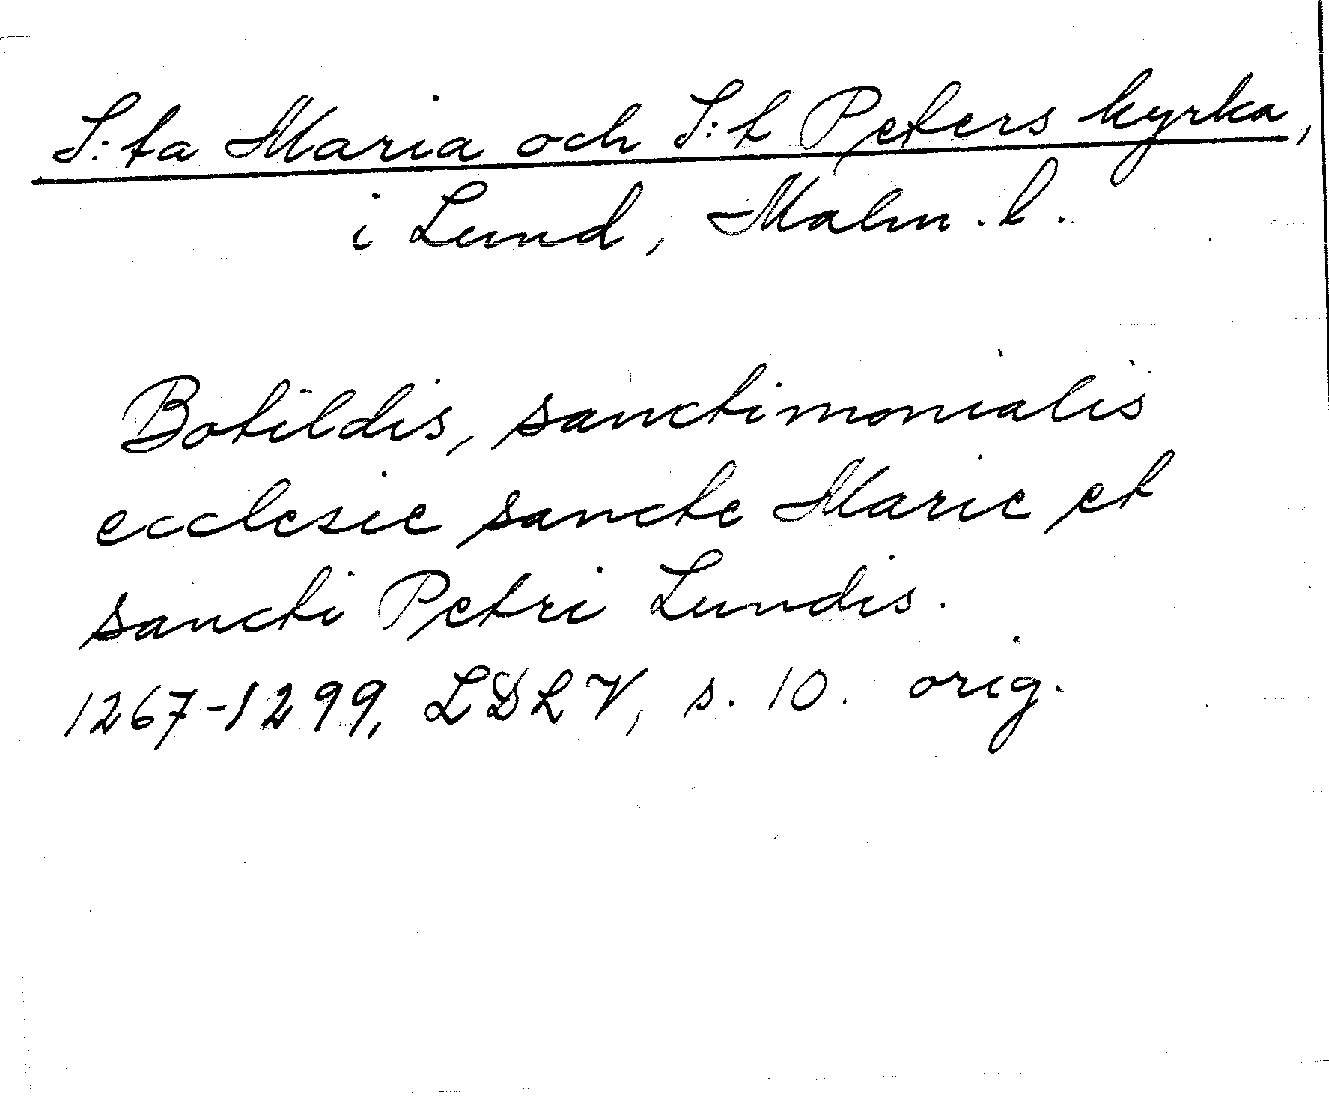 S:ta Maria och S:t Peters kyrka,
i Lund, Malm. l.
Botildis, sanctimonialis
ecclesie sancte Marie et
sancti Petri Lundis.
1267-1299, LDLV, s. 10. orig.